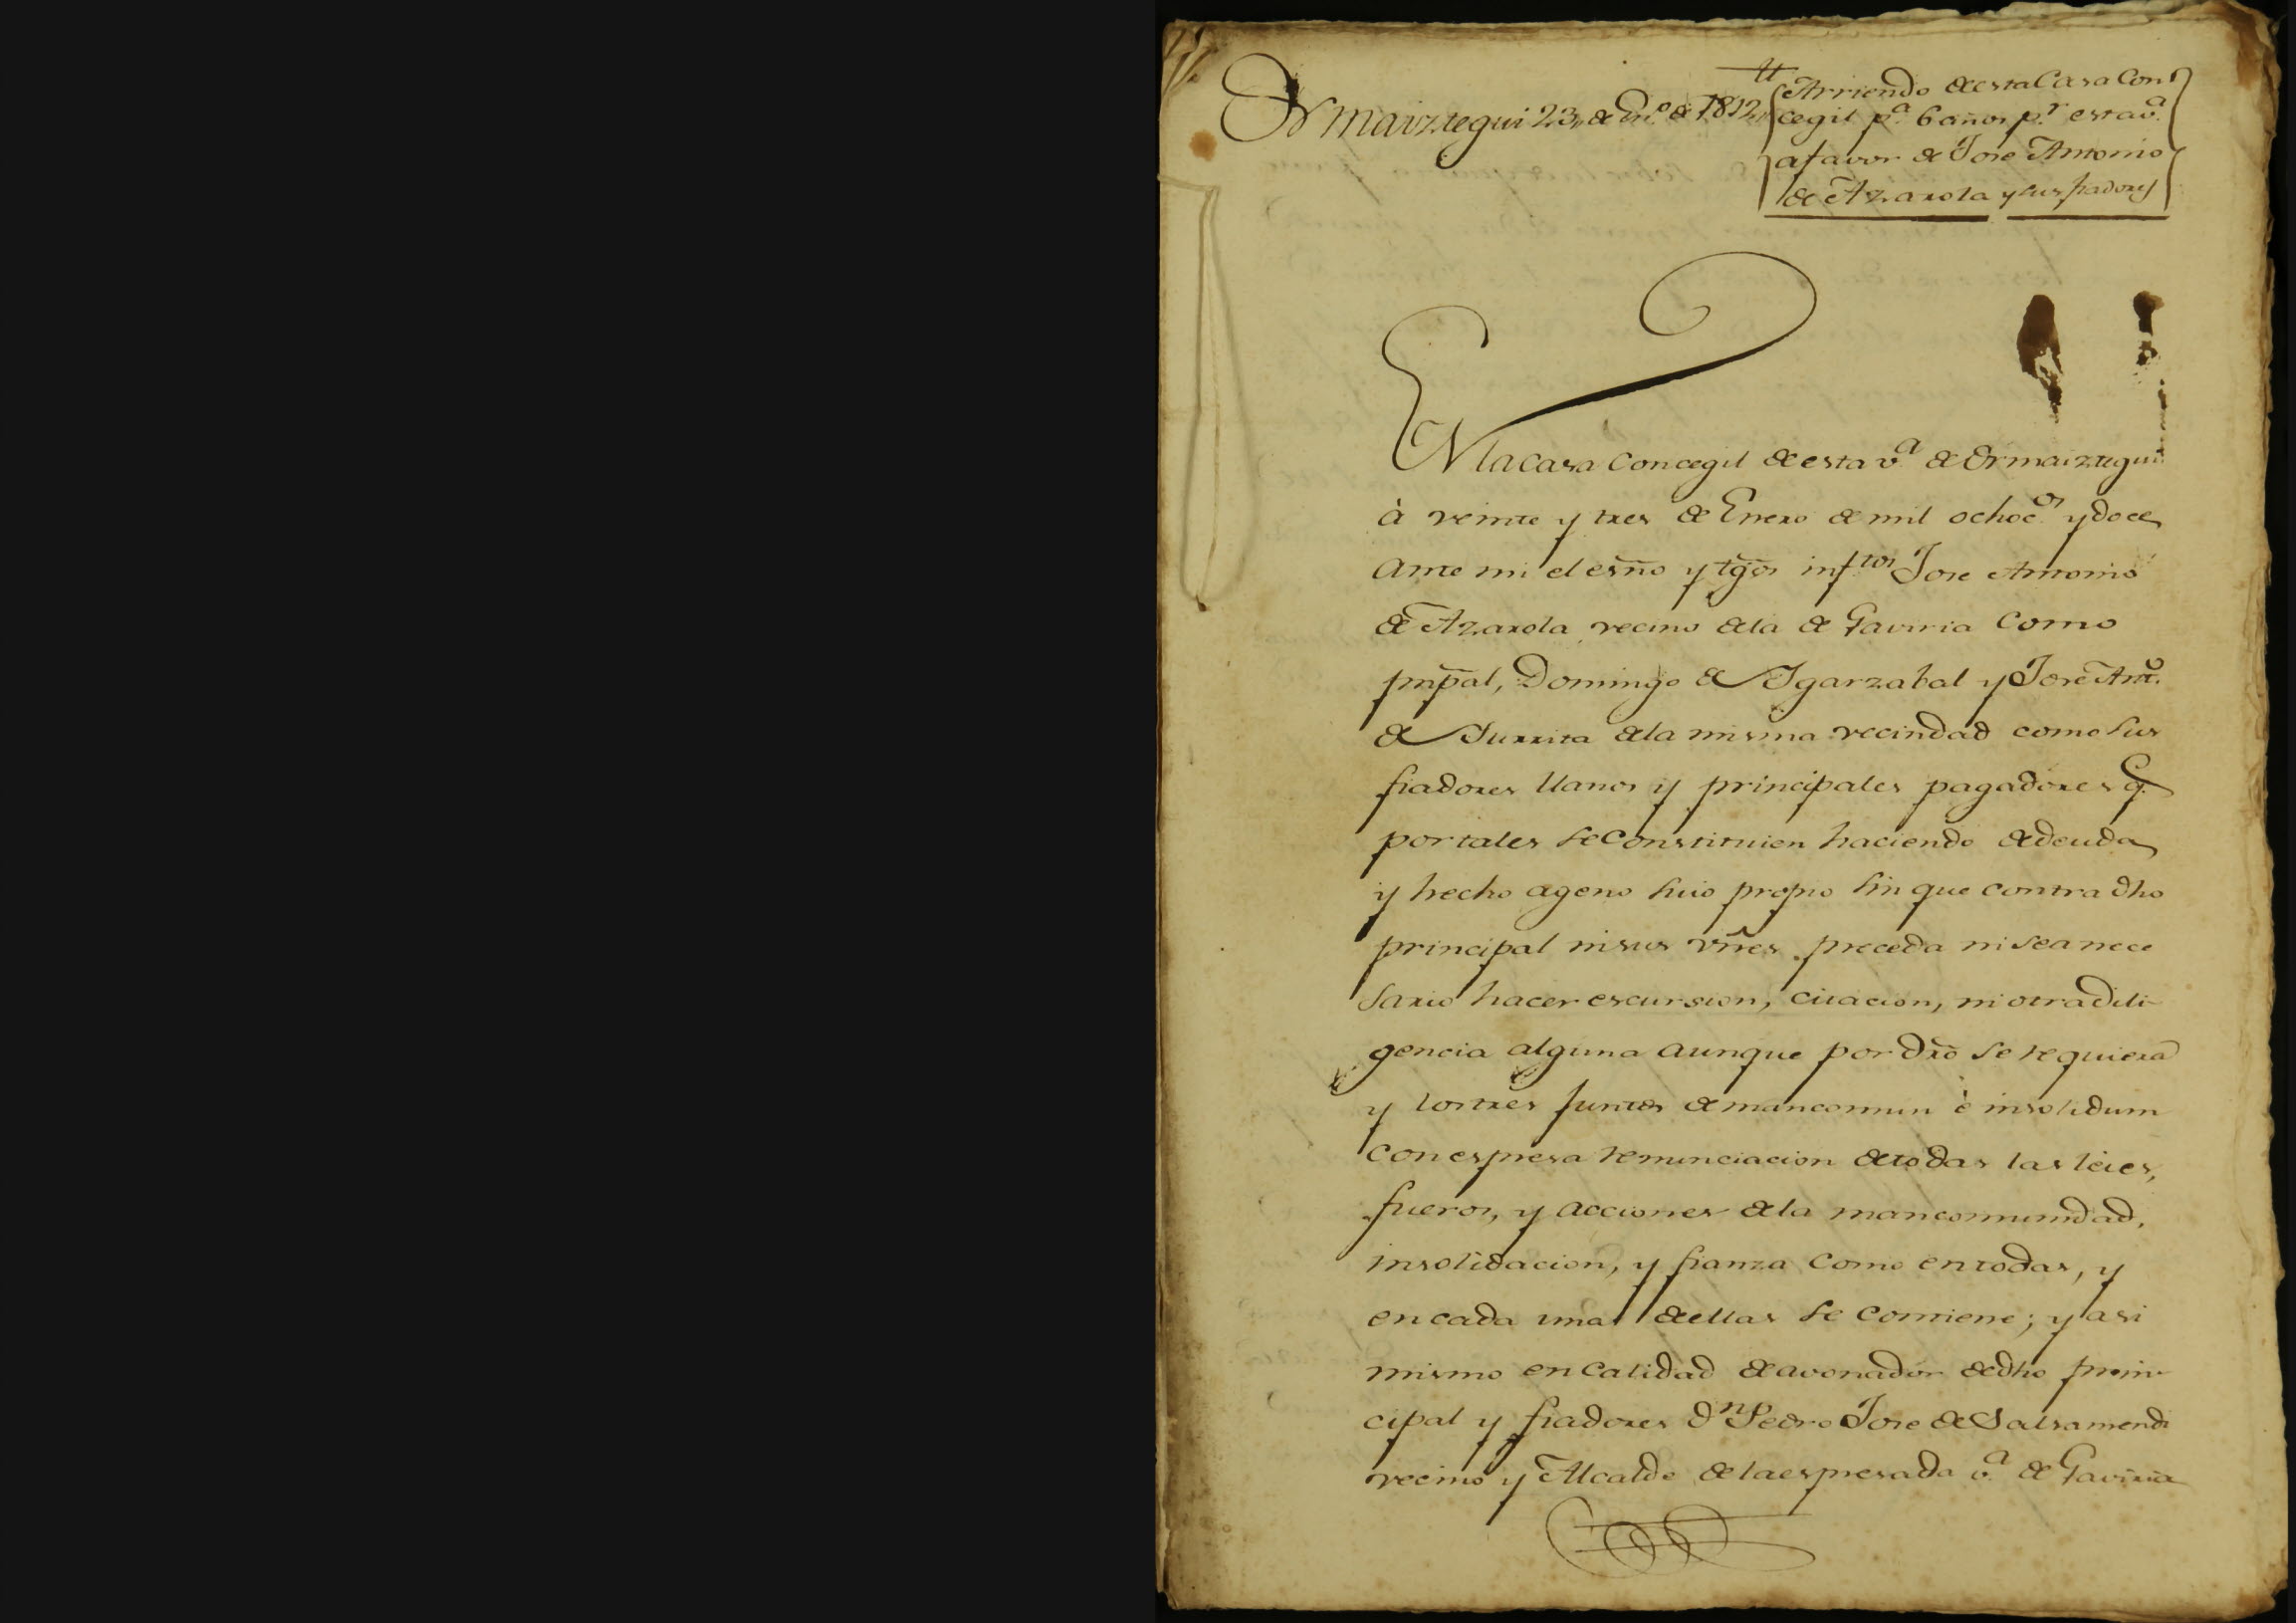 Ormaiztegui 23,, de En.º de 1812,,
Arriendo de esta Casa Con
cegil p.ª 6 años p.r esta v.ª
a favor de Jose Antonio
de Azarola y sus fiadores
EN la casa Concegil de esta v.ª de Ormaiztegui
à veinte y tres de Enero de mil ochoc.os y doce
ante mi el esño y tgõs inf.tos Jose Antonio
de Azarola vecino de la de Gaviria como
pnp̃al, Domingo de Igarzabal y Jose Ant.º
de Iurrita de la misma vecindad como sus
fiadores llanos y principales pagadores q.e
por tales se constituien haciendo de deuda
y hecho ageno suio propio sin que contra dho
principal ni sus vñes preceda ni sea nece
sario hacer escursion, citacion, ni otra dili-
gencia alguna aunque por dr̃o se requiera
y los tres juntos de mancomun è insolidum
con espresa renunciacion de todas las leies,
fueros, y acciones de la mancomunidad,
insolidacion, y fianza como en todas, y
en cada una de ellas se contiene; y asi
mismo en calidad de avonador de dho prin-
cipal y fiadores d.n Pedro Jose de Salsamendi
vecino y Alcalde de la espresada v.ª de Gaviria